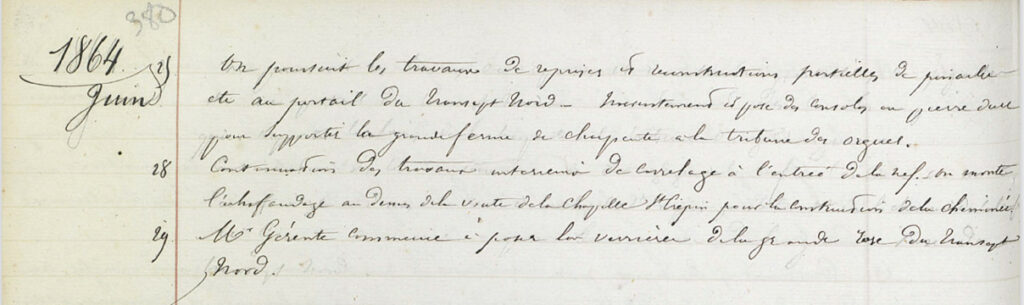 380
1864.
Juin
25 On poursuit les travaux de reprises et reconstructions partielles de pinacles
etc au portail du Transept Nord _ et pose des consoles en pierre dure
pour supporter la grande ferme de charpente à la tribune des orgues.
28 Continuation des travaux interieurs de carrelage à l'entrée de la nef. On monte
l'échaffaudage au dessus de la voute de la Chapelle St Crépin pour la construction de la cheminée.
29 Mr Gérente commence à poser la verrière de la grande rose du Transept
Nord.